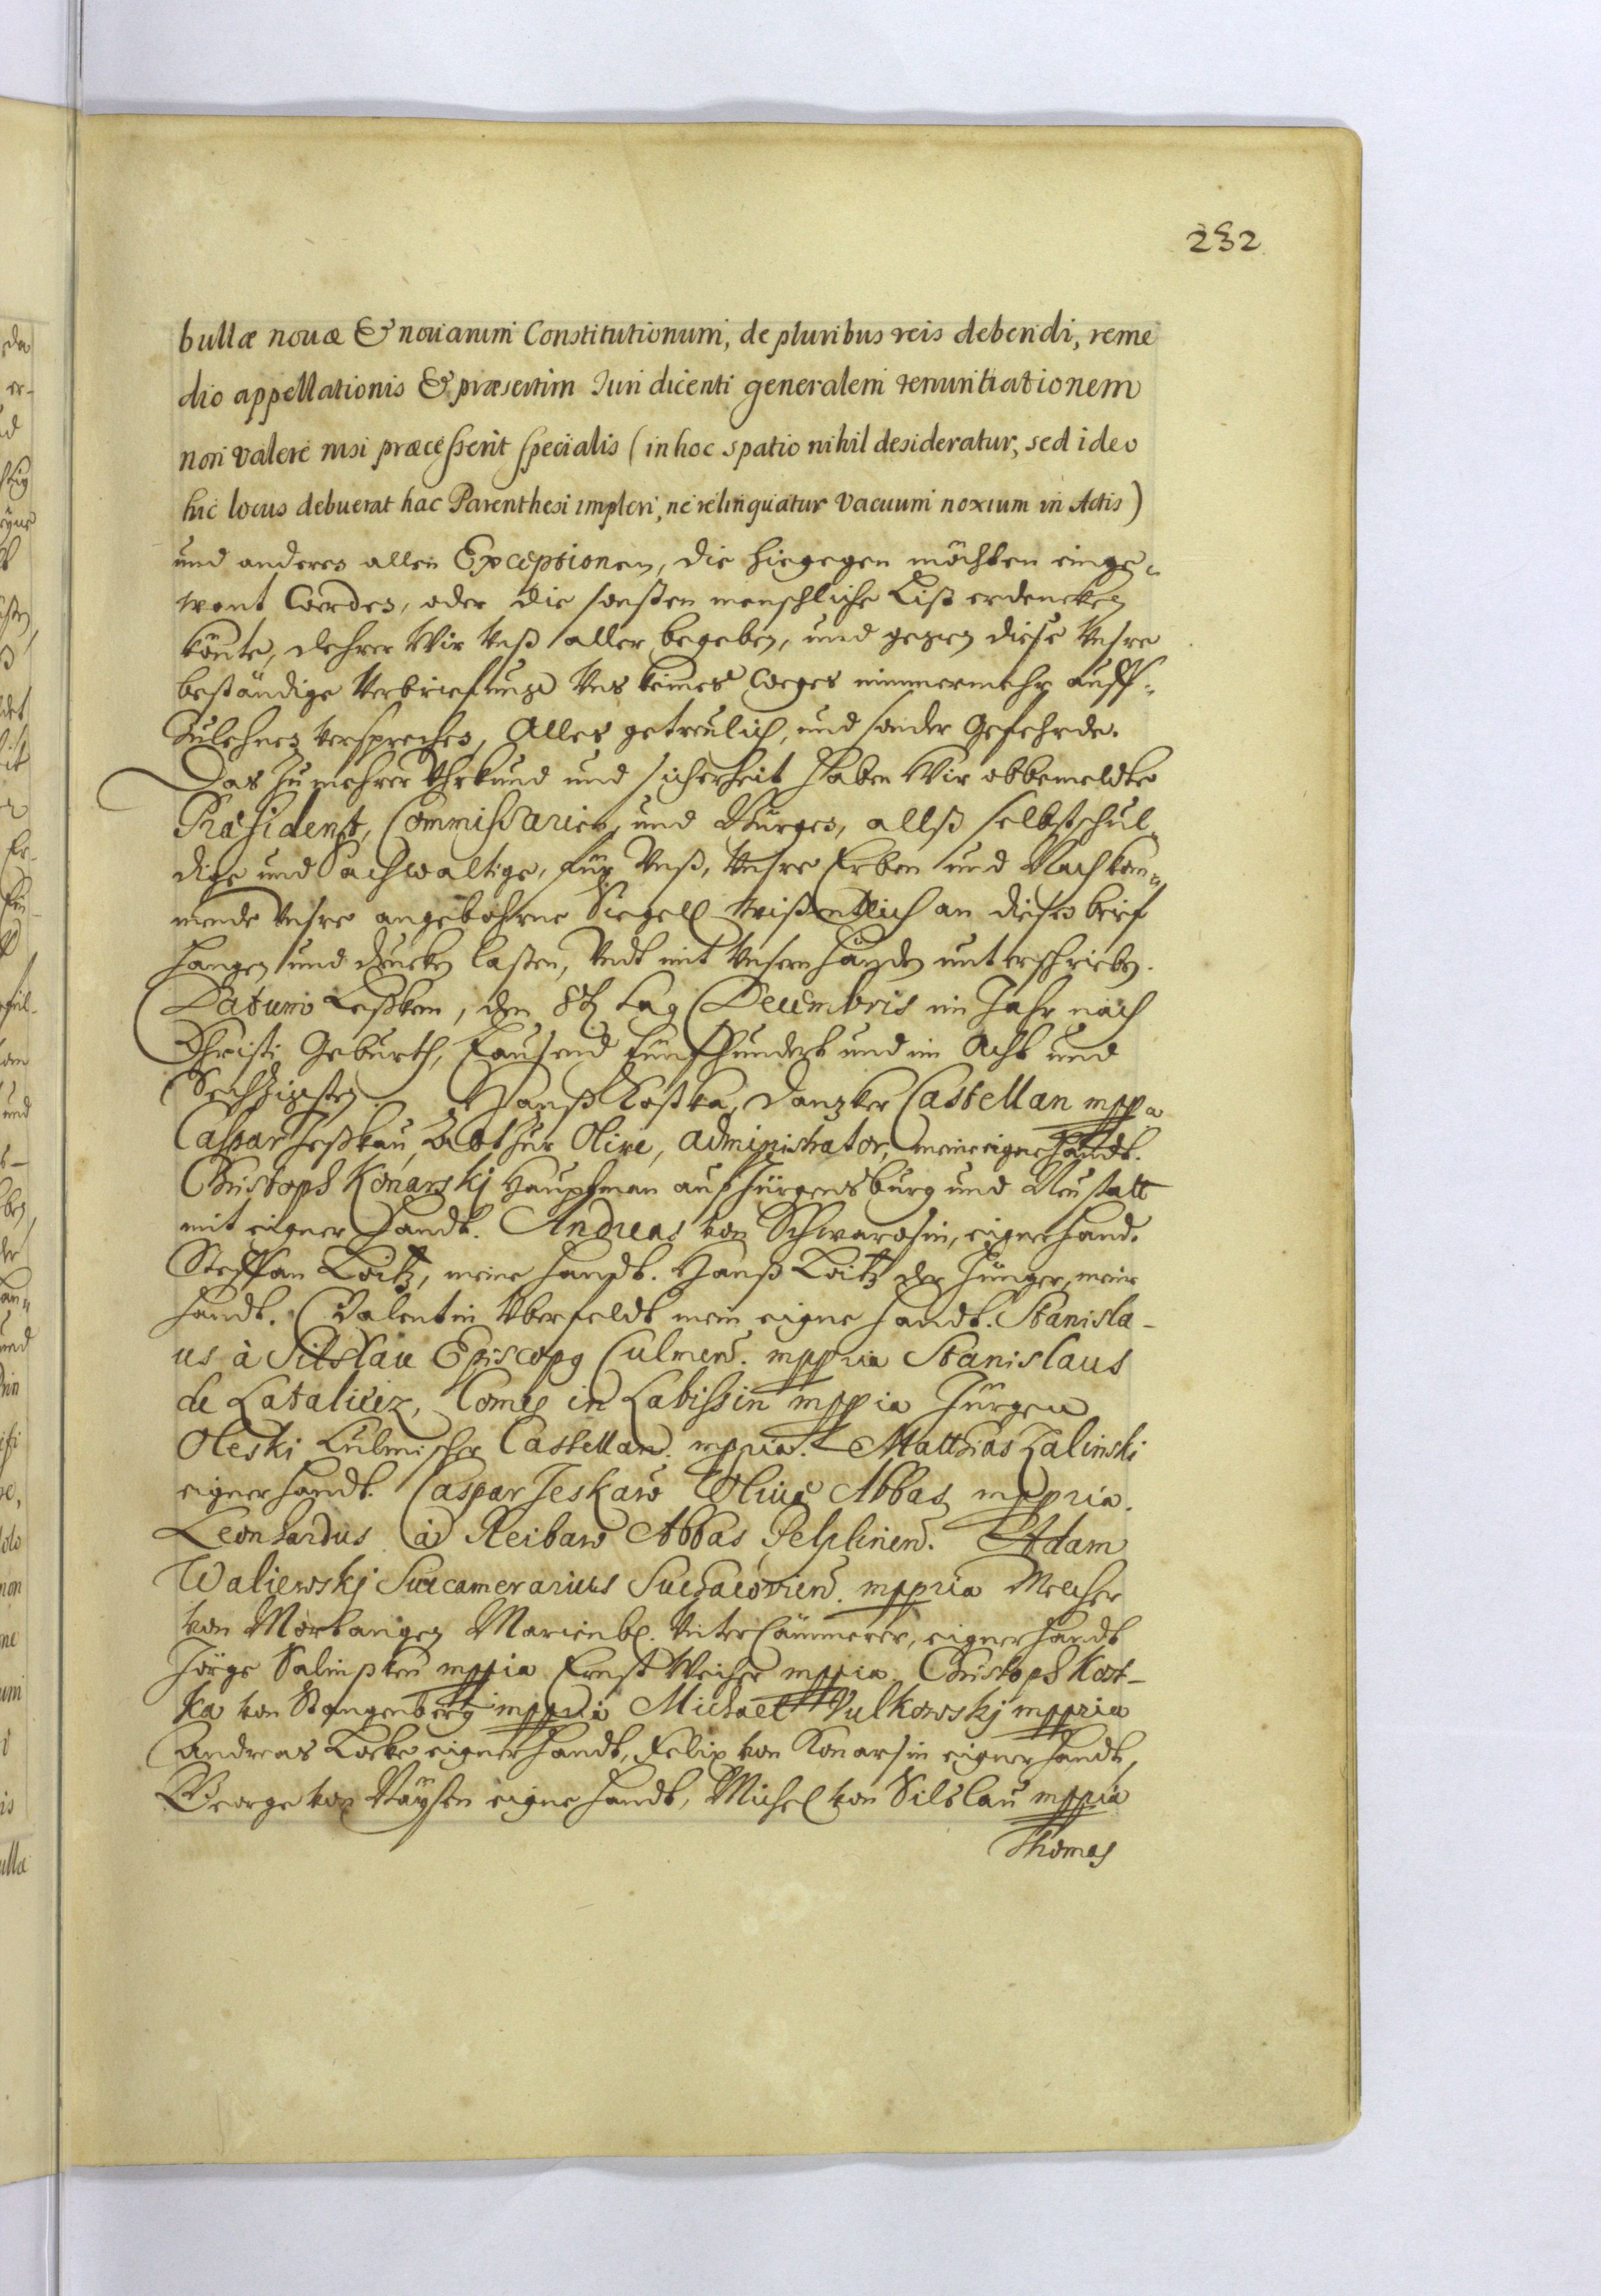 232
bullæ novæ & novarum Constitutionum, de pluribus reis debendi, reme
dio appellationis & præsertim Iuri dicenti generalem renuntiationem
non valere nisi præcesserit specialis (in hoc spatio nihil desideratur, sed ideo
hic locus debuerat hac Parenthesi impleri, ne relinquatur vacuum noxium in Actis)
und anderen allen Exceptionen, die hiegegen möchten einge-
want werden, oder die sonsten menschliche List erdencken
könte, dehrer Wir Vnß aller begeben, und gegen diese Vnsre
beständige Verbriefunge Vns keines weges nimmermehr auff-
zulehnen versprechen, Alles getreulich, und sonder Gefehrde.
Das zu mehrer Vhrkund und sicherheit haben Wir obbemeldte
Præsident, Commissarien, und Bürgen, allß selbstschul-
dige und Sachwaltige, für Vnß, Vnsre Erben und Nachkom-
mende Vnsre angebohrne Siegell wißentlich an diesen breif
hangen und drucken laßen, Vndt mit Vnsern händen unterschrieben.
Datum Leßken, den 8ten tag Decembris im Jahr nach
Christi Geburth, Tausend fünfhundert und im Acht und
Sechzigsten. Hanß Koßtka, Danzker Castellan mppa
Caspar Jeßkau, Abt zur Olive, Administrator, meine eigne handt.
Christoph Konarskj Hauptman auf Jürgensburg und Neustatt
mit eigner Handt. Andreas von Schwarosin, eigner hand.
Steffan Loitz, meine handt. Hanß Loitz der Jünger, meine
handt. Valentin Vberfeldt mein eigne handt. Stanisla-
us à Silslau Episcopg Culmens. mppria Stanislaus
de Latalicz, Comes in Labissin mppia Jürgen
Oleski Culmischer Castellan. mppria. Matthias Zalinski
eigner handt. Caspar Jeskaw Olivæ Abbas mppria.
Leonhardus à Reibaw Abbas Pelplinens. Adam
Waliewskj Succamerarius mppria Melcher
von Mortangen Marienb. Vnter Cämmerer, eigner handt
Jörge Salinßken mppia Ernst Weiher mppia. Christoph Kost-
ka von Stangenberg mppria Michael Vulkowskj mppria
Andreas eigner handt, Felix von Konarsin eigner handt,
George von Baysen eigne handt, Michel von Silslau mppia
Thomas